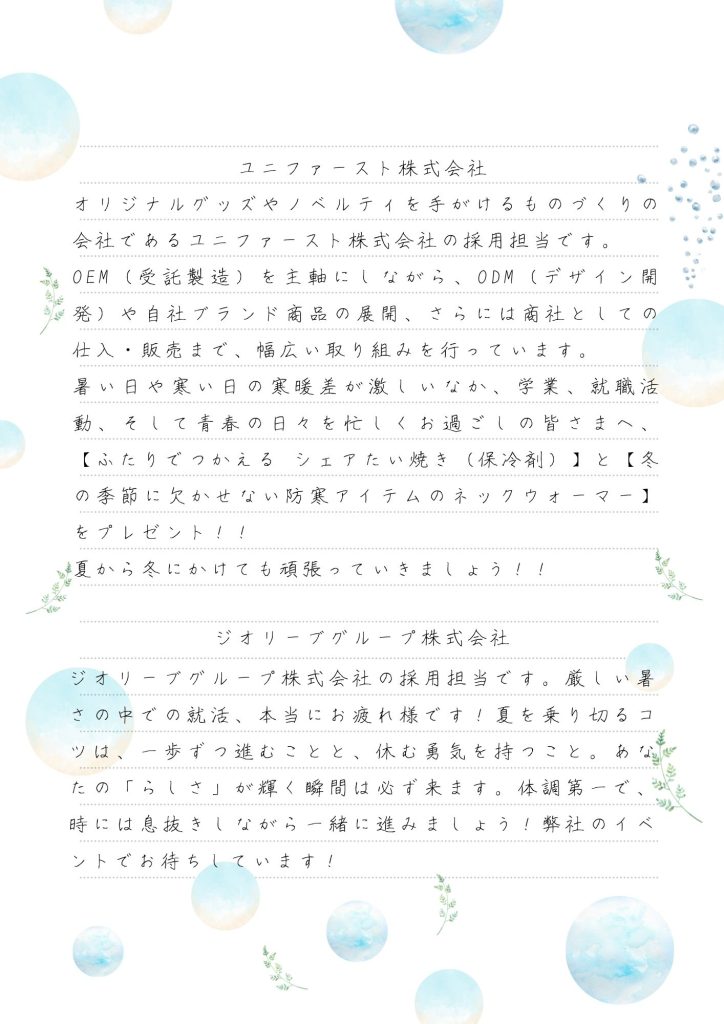 ユニファースト株式会社
オリジナルグッズやノベルティを手がけるものづくりの
会社であるユニファースト株式会社の採用担当です。
OEM（受託製造）を主軸にしながら、ODM（デザイン開
発）や自社ブランド商品の展開、さらには商社としての
仕入・販売まで、幅広い取り組みを行っています。
暑い日や寒い日の寒暖差が激しいなか、学業、就職活
動、そして青春の日々を忙しくお過ごしの皆さまへ、
【ふたりでつかえる シェアたい焼き（保冷剤）】と【冬
の季節に欠かせない防寒アイテムのネックウォーマー】
をプレゼント！！
夏から冬にかけても頑張っていきましょう！！
ジオリーブグループ株式会社
ジオリーブグループ株式会社の採用担当です。厳しい暑
さの中での就活、本当にお疲れ様です！夏を乗り切るコ
ツは、一歩ずつ進むことと、休む勇気を持つこと。あな
たの「らしさ」が輝く瞬間は必ず来ます。体調第一で、
時には息抜きしながら一緒に進みましょう！弊社のイベ
ントでお待ちしています！